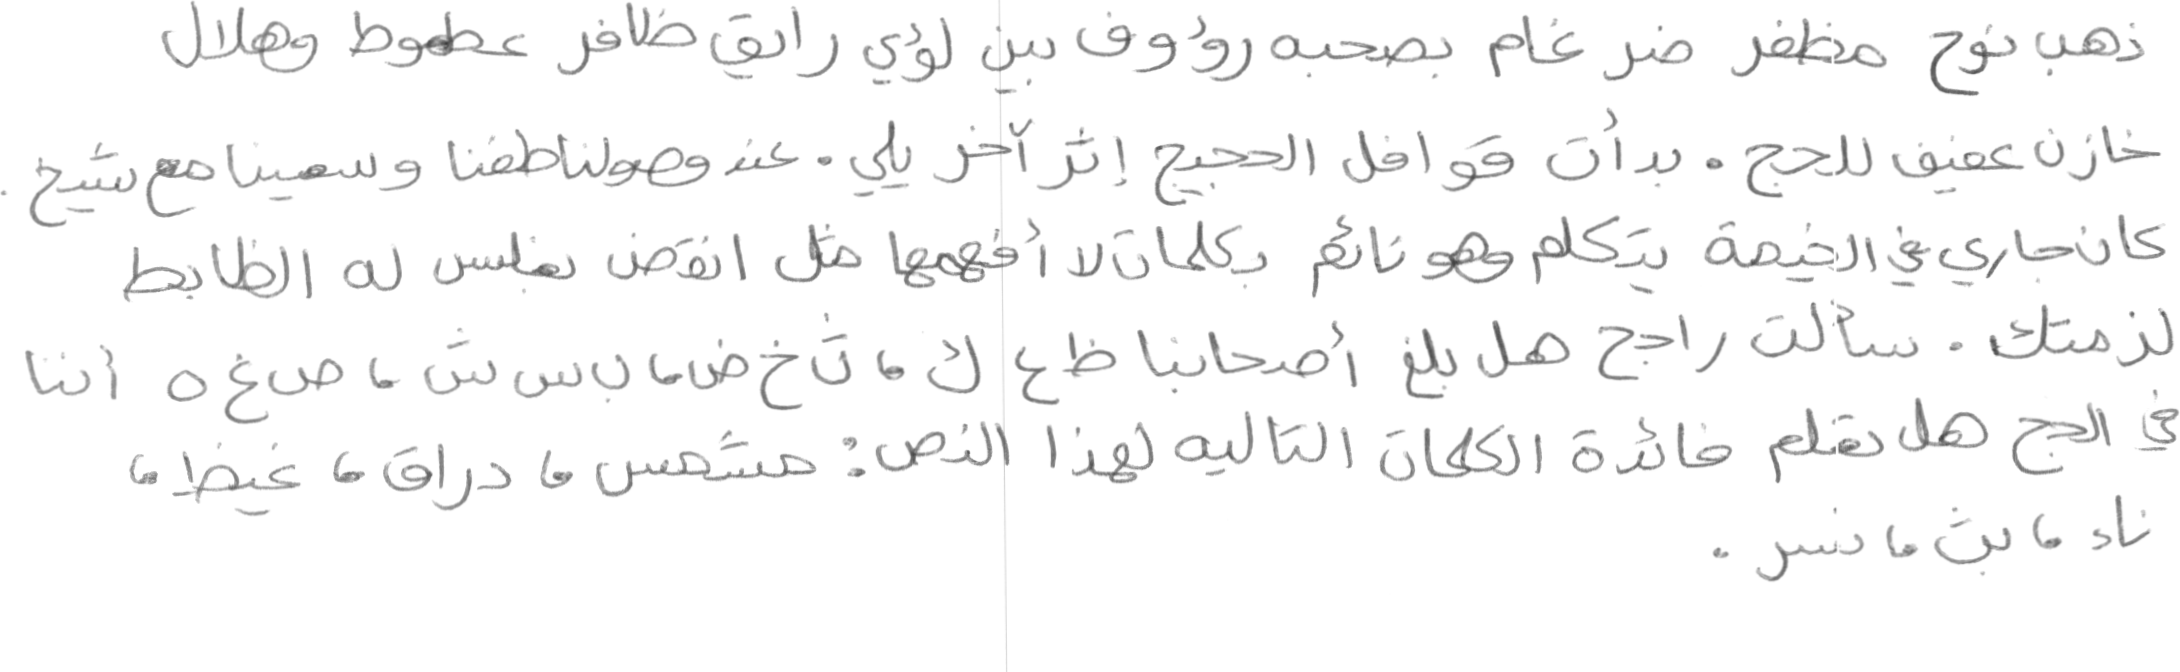 ذهب نوح مظفر ضرغام بصحبه رؤوف بين لؤي رايق ظافر عطعوط وهلال
خازن عفيف للحج . بدأت قوافل الحجيج إثر آخر يلي . عند وصولنا طفنا وسعينا مع شيخ .
كان جاري في الخيمة يتكلم وهو نائم بكلمات لا أفهمها مثل انقض بغلس له الظابط
لزمتك . سألت راجح هل بلغ أصحابنا ظ ع ك ، ث خ ض ، ب س ش ، ص غ ه أننا
في الحج هل تعلم فائدة الكلمات التاليه لهذا النص : مشمس ، دراق ، غيظ ،
ناء ، بث ، نسر .